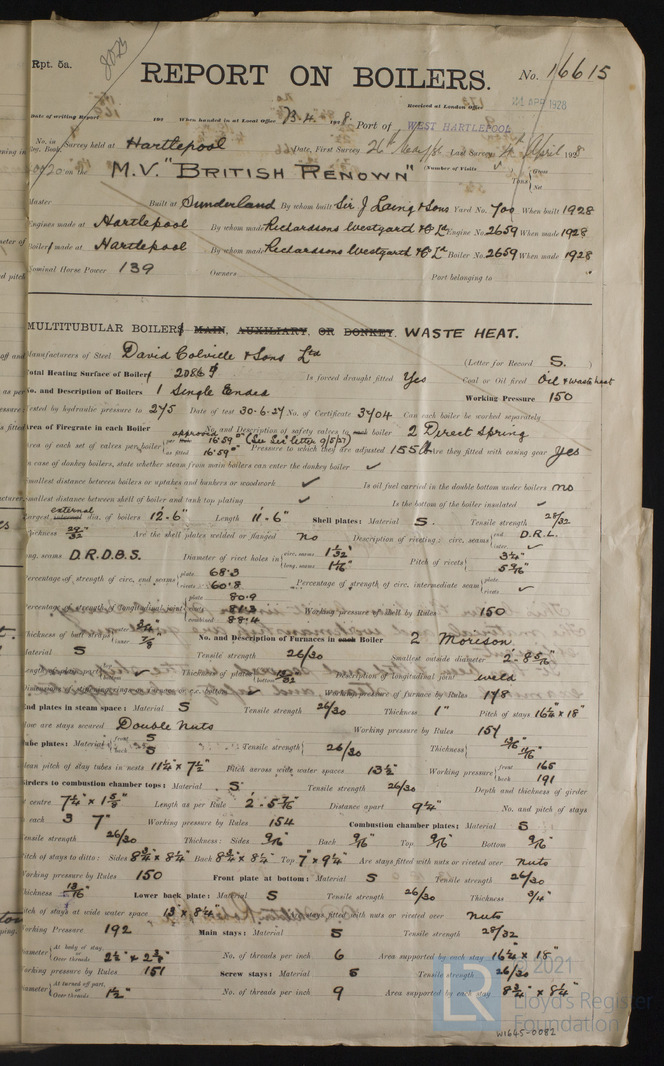 8025
Rpt. 5a.
REPORT ON BOILERS.
No. 16615
Received at London Office
21 APR 1928
Date of writing Report 192 When handed in at Local Office 13.4. 1928. Port of WEST HARTLEPOOL
No. in Reg. Book. Survey held at Hartlepool Date, First Survey 26th Last Survey 4th April 1928
on the M.V. "BRITISH RENOWN" (Number of Visits Gross Tons Net
Master Built at Sunderland By whom built Sir J Laing & Sons Yard No. 700 When built 1928
Engines made at Hartlepool By whom made Richardsons Westgarth & Co Ld Engine No. 2659 When made 1928
Boilers made at Hartlepool By whom made Richardsons Westgarth & Co Ld Boiler No. 2659 When made 1928
Nominal Horse Power 139 Owners Port belonging to
MULTITUBULAR BOILERS MAIN, AUXILIARY, OR DONKEY. WASTE HEAT.
Manufacturers of Steel David Colville & Sons Ltd (Letter for Record S. )
Total Heating Surface of Boilers 2086 Is forced draught fitted Yes Coal or Oil fired Oil & waste heat
No. and Description of Boilers 1 Single Ended Working Pressure 150
Tested by hydraulic pressure to 275 Date of test 30.6.27 No. of Certificate 3704 Can each boiler be worked separately
Area of Firegrate in each Boiler No. and Description of safety valves to each boiler 2 Direct Spring
Area of each set of valves per boiler approved per Rule 16.59" as fitted 16.59" (See Sec. letter 9/5/27) Pressure to which they are adjusted 155 lb Are they fitted with easing gear yes
In case of donkey boilers, state whether steam from main boilers can enter the donkey boiler ✓
Smallest distance between boilers or uptakes and bunkers or woodwork ✓ Is oil fuel carried in the double bottom under boilers no
Smallest distance between shell of boiler and tank top plating ✓ Is the bottom of the boiler insulated ✓
Largest internal external dia. of boilers 12'-6" Length 11'-6" Shell plates: Material S. Tensile strength 28/32
Thickness 29/32" Are the shell plates welded or flanged no Description of riveting: circ. seams end D.R.L. inter. ✓
long. seams D.R.D.B.S. Diameter of rivet holes in circ. seams 1 1/32" long. seams 1 1/16" Pitch of rivets 3 1/4" 5 3/16"
Percentage of strength of circ. end seams plate 68.3 rivets 60.8 Percentage of strength of circ. intermediate seam plate rivets ✓
Percentage of strength of longitudinal joint plate 80.9 rivets 81.3 combined 88.4 Working pressure of shell by Rules 150
Thickness of butt straps outer 3/4" inner 7/8" No. and Description of Furnaces in each Boiler 2 Morison
Material S Tensile strength 26/30 Smallest outside diameter 2'-8 5/16"
Length of plain part Thickness of plates bottom Description of longitudinal joint weld
Working pressure of furnace by Rules 178
End plates in steam space: Material S Tensile strength 26/30 Thickness 1" Pitch of stays 16 1/4" x 18"
How are stays secured Double Nuts Working pressure by Rules 154
Tube plates: Material front S back S Tensile strength 26/30 Thickness 13/16" 11/16"
Mean pitch of stay tubes in nests 11 1/4" x 7 1/2" Pitch across wide water spaces 13 1/2" Working pressure front 165 back 191
Girders to combustion chamber tops: Material S Tensile strength 26/30 Depth and thickness of girder
at centre 7 1/4" x 1 5/8" Length as per Rule 2'-5 7/16" Distance apart 9 1/4" No. and pitch of stays
in each 3 7" Working pressure by Rules 154 Combustion chamber plates: Material S
Tensile strength 26/30 Thickness: Sides 9/16" Back 9/16" Top 9/16" Bottom 9/16"
Pitch of stays to ditto: Sides 8 3/4" x 8 1/4" Back 8 3/4" x 8 1/4" Top 7" x 9 1/4" Are stays fitted with nuts or riveted over nuts
Working pressure by Rules 150 Front plate at bottom: Material S Tensile strength 26/30
Thickness 13/16" Lower back plate: Material S Tensile strength 26/30 Thickness 3/4"
Pitch of stays at wide water space 13" x 8 1/4" Are stays fitted with nuts or riveted over nuts
Working Pressure 192 Main stays: Material S Tensile strength 28/32
Diameter At body of stay or Over threads 2 1/2" x 2 3/8" No. of threads per inch 6 Area supported by each stay 16 1/4" x 18"
Working pressure by Rules 151 Screw stays: Material S Tensile strength 26/30
Diameter At turned off part or Over threads 1 1/2" No. of threads per inch 9 Area supported by each stay 8 3/4" x 8 1/4"
LR
© 2021
Lloyd's Register
Foundation
W1645-0082